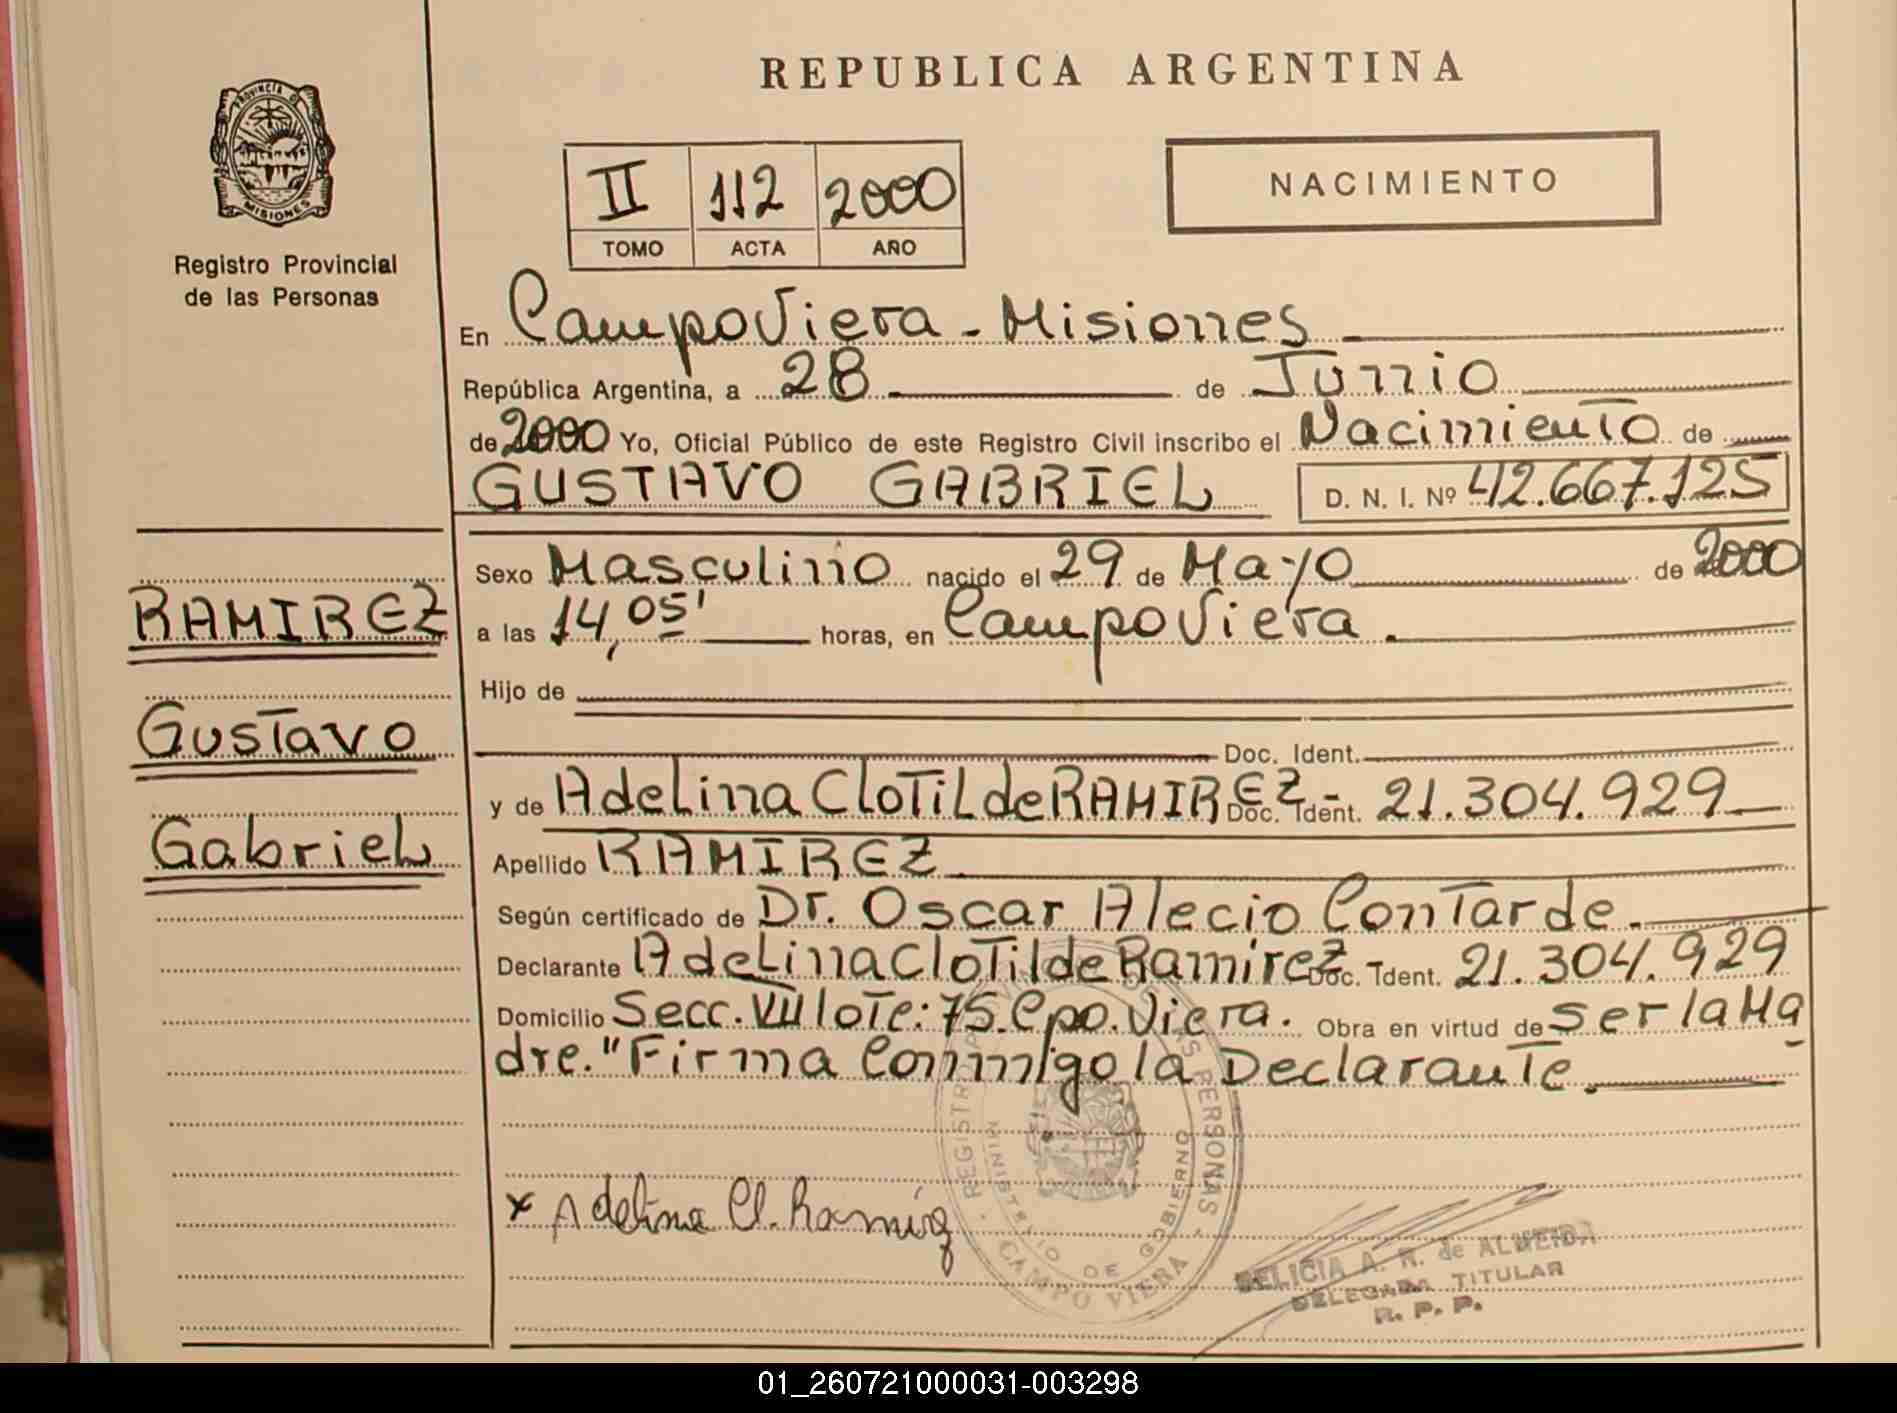 REPUBLICA ARGENTINA
PROVINCIA DE
MISIONES
Registro Provincial
de las Personas
II 112 2000
TOMO ACTA AÑO
NACIMIENTO
En CampoViera - Misiones
República Argentina, a 28 de Junio
de 2000 Yo, Oficial Público de este Registro Civil inscribo el Nacimiento de
GUSTAVO GABRIEL D. N. I. Nº 42.667.125
Sexo Masculino nacido el 29 de Mayo de 2000
a las 14,05' horas, en CampoViera.
Hijo de
Doc. Ident.
y de Adelina Clotilde RAMIREZ- Doc. Ident. 21.304.929
Apellido RAMIREZ
Según certificado de Dr. Oscar Alecio Contarde.
Declarante Adelina Clotilde Ramirez- Doc. Ident. 21.304.929
Domicilio Secc. VIII lote: 75. Cpo. Viera. Obra en virtud de ser la Ma
dre." Firma Conmigo la Declarante.
RAMIREZ
Gustavo
Gabriel
x Adelina Cl. Ramirez
REGISTRO PROVINCIAL DE LAS PERSONAS
MINISTERIO DE GOBIERNO
CAMPO VIERA
DELICIA A. R. de ALMEIDA
DELEGADA TITULAR
R. P. P.
01_260721000031-003298